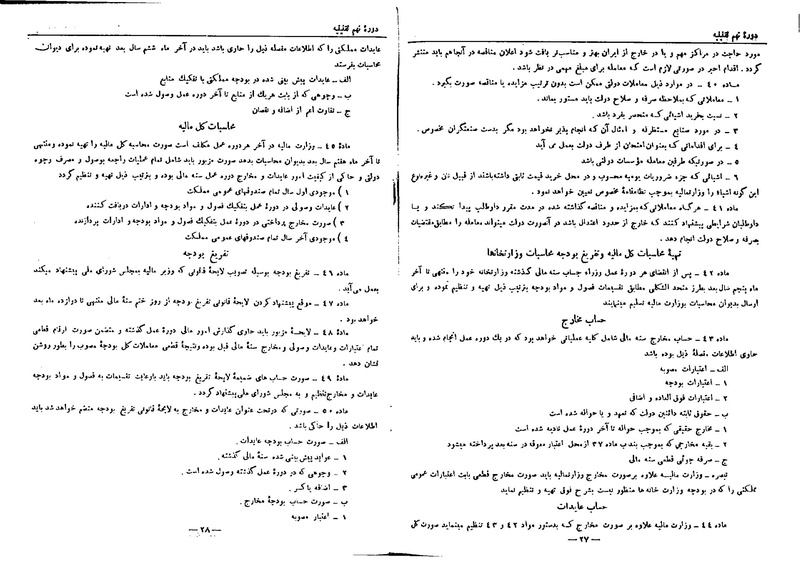 دورهٔ نهم تقنینیه
مورد حاجت در مراکز مهم و یا در خارج از ایران بهتر و مناسب‌تر یافت شود اعلان مناقصه در آنجا هم باید منتشر
گردد . اقدام اخیر در صورتی لازم است که معامله برای مبلغ مهمی در نظر باشد .
مـاده ۴۰ - در موارد ذیل معاملات دولتی ممکن است بدون ترتیب مزایده یا مناقصه صورت بگیرد .
۱ - معاملاتی که بملاحظه صرفه و صلاح دولت باید مستور بماند .
۲ - نسبت بخرید اشیائی که منحصر بفرد باشد .
۳ - در مورد صنایع مستظرفه و امثال آن که انجام پذیر نخواهد بود مگر بدست صنعتگران مخصوص .
۴ - برای اقداماتی که بعنوان امتحان از طرف دولت بعمل می آید
۵ - در صورتیکه طرفین معامله مؤسسات دولتی باشد
۶ - اشیائی که جزء ضروریات یومیه محسوب و در محل خرید قیمت ثابتی داشته‌باشند از قبیل نان و غیره‌نوع
این گونه اشیاء را وزارتمالیه بموجب نظامنامهٔ مخصوص تعیین خواهد نمود .
ماده ۴۱ - هرگاه معاملاتی که بمزایده و مناقصه گذاشته شده در مدت مقرر داوطلب پیدا نکنند و یا
داوطلبان شرایطی پیشنهاد کنند که خارج از حدود اعتدال باشد در آنصورت دولت میتواند معامله را مطابق مقتضیات
بصرفه و صلاح دولت انجام دهد .
تهیهٔ محاسبات کل مالیه و تفریغ بودجه محاسبات وزارتخانها
ماده ۴۲ - پس از انقضای هر دورهٔ عمل وزراء حساب سنه مالی گذشته وزارتخانه خود را منتهی تا آخر
ماه پنجم سال بعد بطرز متحد الشکلی مطابق تقسیمات فصول و مواد بودجه بترتیب ذیل تهیه و تنظیم نموده و برای
ارسال بدیوان محاسبات بوزارت مالیه تسلیم مینمایند
حساب مخارج
ماده ۴۳ - حساب مخارج سنه مالی شامل کلیه عملیاتی خواهد بود که در یك دوره عمل انجام شده و باید
حاوی اطلاعات مفصلهٔ ذیل بوده باشد
الف - اعتبارات مصوبه
۱ - اعتبارات بودجه
۲ - اعتبارات فوق العاده و اضافی
ب - حقوق ثابته دائنین دولت که تعهد و یا حواله شده است
۱ - مخارج حقیقی که بموجب حواله تا آخر دورهٔ عمل تأدیه شده است
۲ - بقیه مخارجی که بموجب بند ب ماده ۳۷ از محل اعتبار معوقه در سنه بعد پرداخته میشود
ج - صرفه جوئی قطعی سنه مالی
تبصره - وزارت مالیـه علاوه بر صورت مخارج وزارتمالیه باید صورت مخارج قطعی بابت اعتبارات عمومی
مملکتی را که در بودجه وزارت خانه‌ها منظور نیست بشرح فوق تهیه و تنظیم نماید
حساب عایدات
ماده ۴۴ - وزارت مالیه علاوه بر صورت مخارج کـه بدستور مواد ۴۲ و ۴۳ تنظیم مینماید صورت کل
- ۲۷ -
دورهٔ نهم تقنینیه
عایدات مملکتی را که اطلاعات مفصله ذیل را حاوی باشد باید در آخر ماه ششم سال بعد تهیه نموده برای دیوان
محاسبات بفرستد
الف - عایدات پیش بینی شده در بودجه مملکتی با تفکیك منابع
ب - وجوهی که از بابت هریك از منابع تا آخر دوره عمل وصول شده است
ج - تفاوت اعم از اضافه و نقصان
محاسبات کل مالیه
مادهٔ ۴۵ - وزارت مالیه در آخر هر دوره عمل مکلف است صورت محاسبه کل مالیه را تهیه نموده و منتهی
تا آخر ماه هفتم سال بعد بدیوان محاسبات بدهد صورت مزبور باید شامل تمام عملیات راجعه بوصول و مصرف وجوه
دولتی و حاکی از کیفیت امور عایدات و مخارج دوره عمل سنه مالی بوده و بترتیب ذیل تهیه و تنظیم گردد
۱ ) موجودی اول سال تمام صندوقهای عمومی مملکت
۲ ) عایدات وصولی در دورهٔ عمل بتفکیك فصول و مواد بودجه و ادارات دریافت کننده
۳ ) صورت مخارج پرداختی در دورهٔ عمل بتفکیك فصول و مواد بودجه و ادارات پردازنده
۴ ) موجودی آخر سال تمام صندوقهای عمومی مملکت
تفریغ بودجه
ماده ۴۶ - تفریغ بودجه بوسیله تصویب لایحهٔ قانونی که وزیر مالیه بمجلس شورای ملی پیشنهاد میکند
بعمل می‌آید .
ماده ۴۷ - موقع پیشنهاد کردن لایحهٔ قانونی تفریغ بودجه از روز ختم سنهٔ مالی منتهی تا دوازده ماه بعد
خواهد بود .
مادهٔ ۴۸ - لایحـهٔ مزبور باید حاوی گذارش امور مالی دورهٔ عمل گذشته و متضمن صورت ارقام قطعی
تمام اعتبارات وعایدات وصولی و مخارج سنهٔ مالی قبل بوده و نتیجهٔ قطعی معاملات کل بودجهٔ مصوب را بطور روشن
نشان دهد .
مادهٔ ۴۹ - صورت حساب های ضمیمهٔ لایحهٔ تفریغ بودجه باید بارعایت تقسیمات به فصول و مواد بودجه
عایدات و مخارج تنظیم و به مجلس شورای ملی پیشنهاد گردد .
ماده ۵۰ - صورتی که درتحت عنوان عایدات و مخارج به لایحهٔ قانونی تفریغ بودجه منضم خواهد شد باید
اطلاعات ذیل را حاکی باشد .
الف - صورت حساب بودجه عایدات .
۱ - عواید پیش بینی شده سنهٔ مالی گذشته .
۲ - وجوهی که در دورهٔ عمل گذشته وصول شده است .
۳ - اضافه یا کسر .
ب - صورت حساب بودجهٔ مخارج .
۱ - اعتبار مصوبه
- ۲۸ -